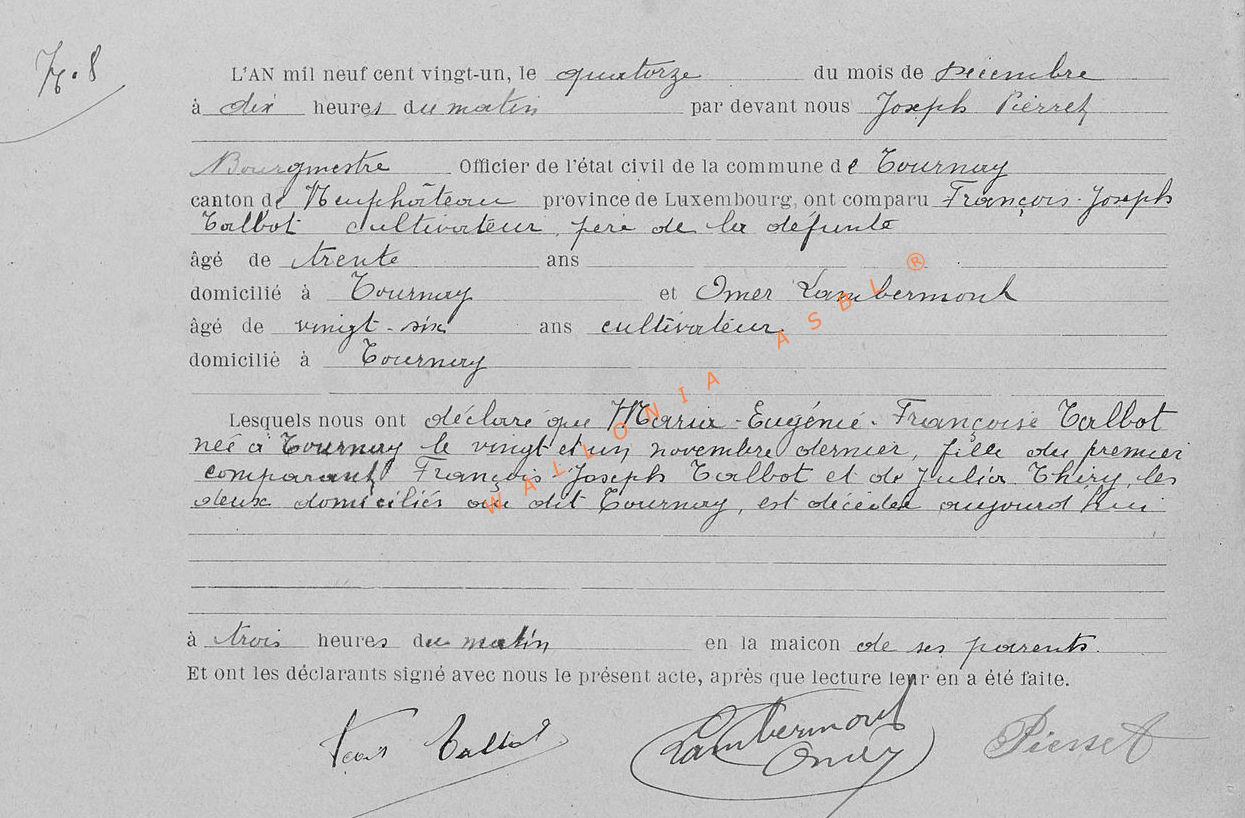 N. 8
L'AN mil neuf cent vingt-un, le quatorze du mois de Décembre
à dix heures du matin par devant nous Joseph Pierret
Bourgmestre Officier de l'état civil de la commune de Tournay
canton de Neufchâteau province de Luxembourg, ont comparu François-Joseph
Talbot cultivateur, père de la défunte
âgé de trente ans
domicilié à Tournay et Omer Lambermont
âgé de vingt-six ans cultivateur.
domicilié à Tournay
Lesquels nous ont déclaré que Maria-Eugénie-Françoise Talbot
née à Tournay le vingt et un novembre dernier, fille du premier
comparant François-Joseph Talbot et de Julia Thiry, les
deux domiciliés au dit Tournay, est décédée aujourd'hui
à trois heures du matin en la maicon de ses parents.
Et ont les déclarants signé avec nous le présent acte, après que lecture leur en a été faite.
Talbot Lambermont Omer Pierret
WALLONIA ASBL ®